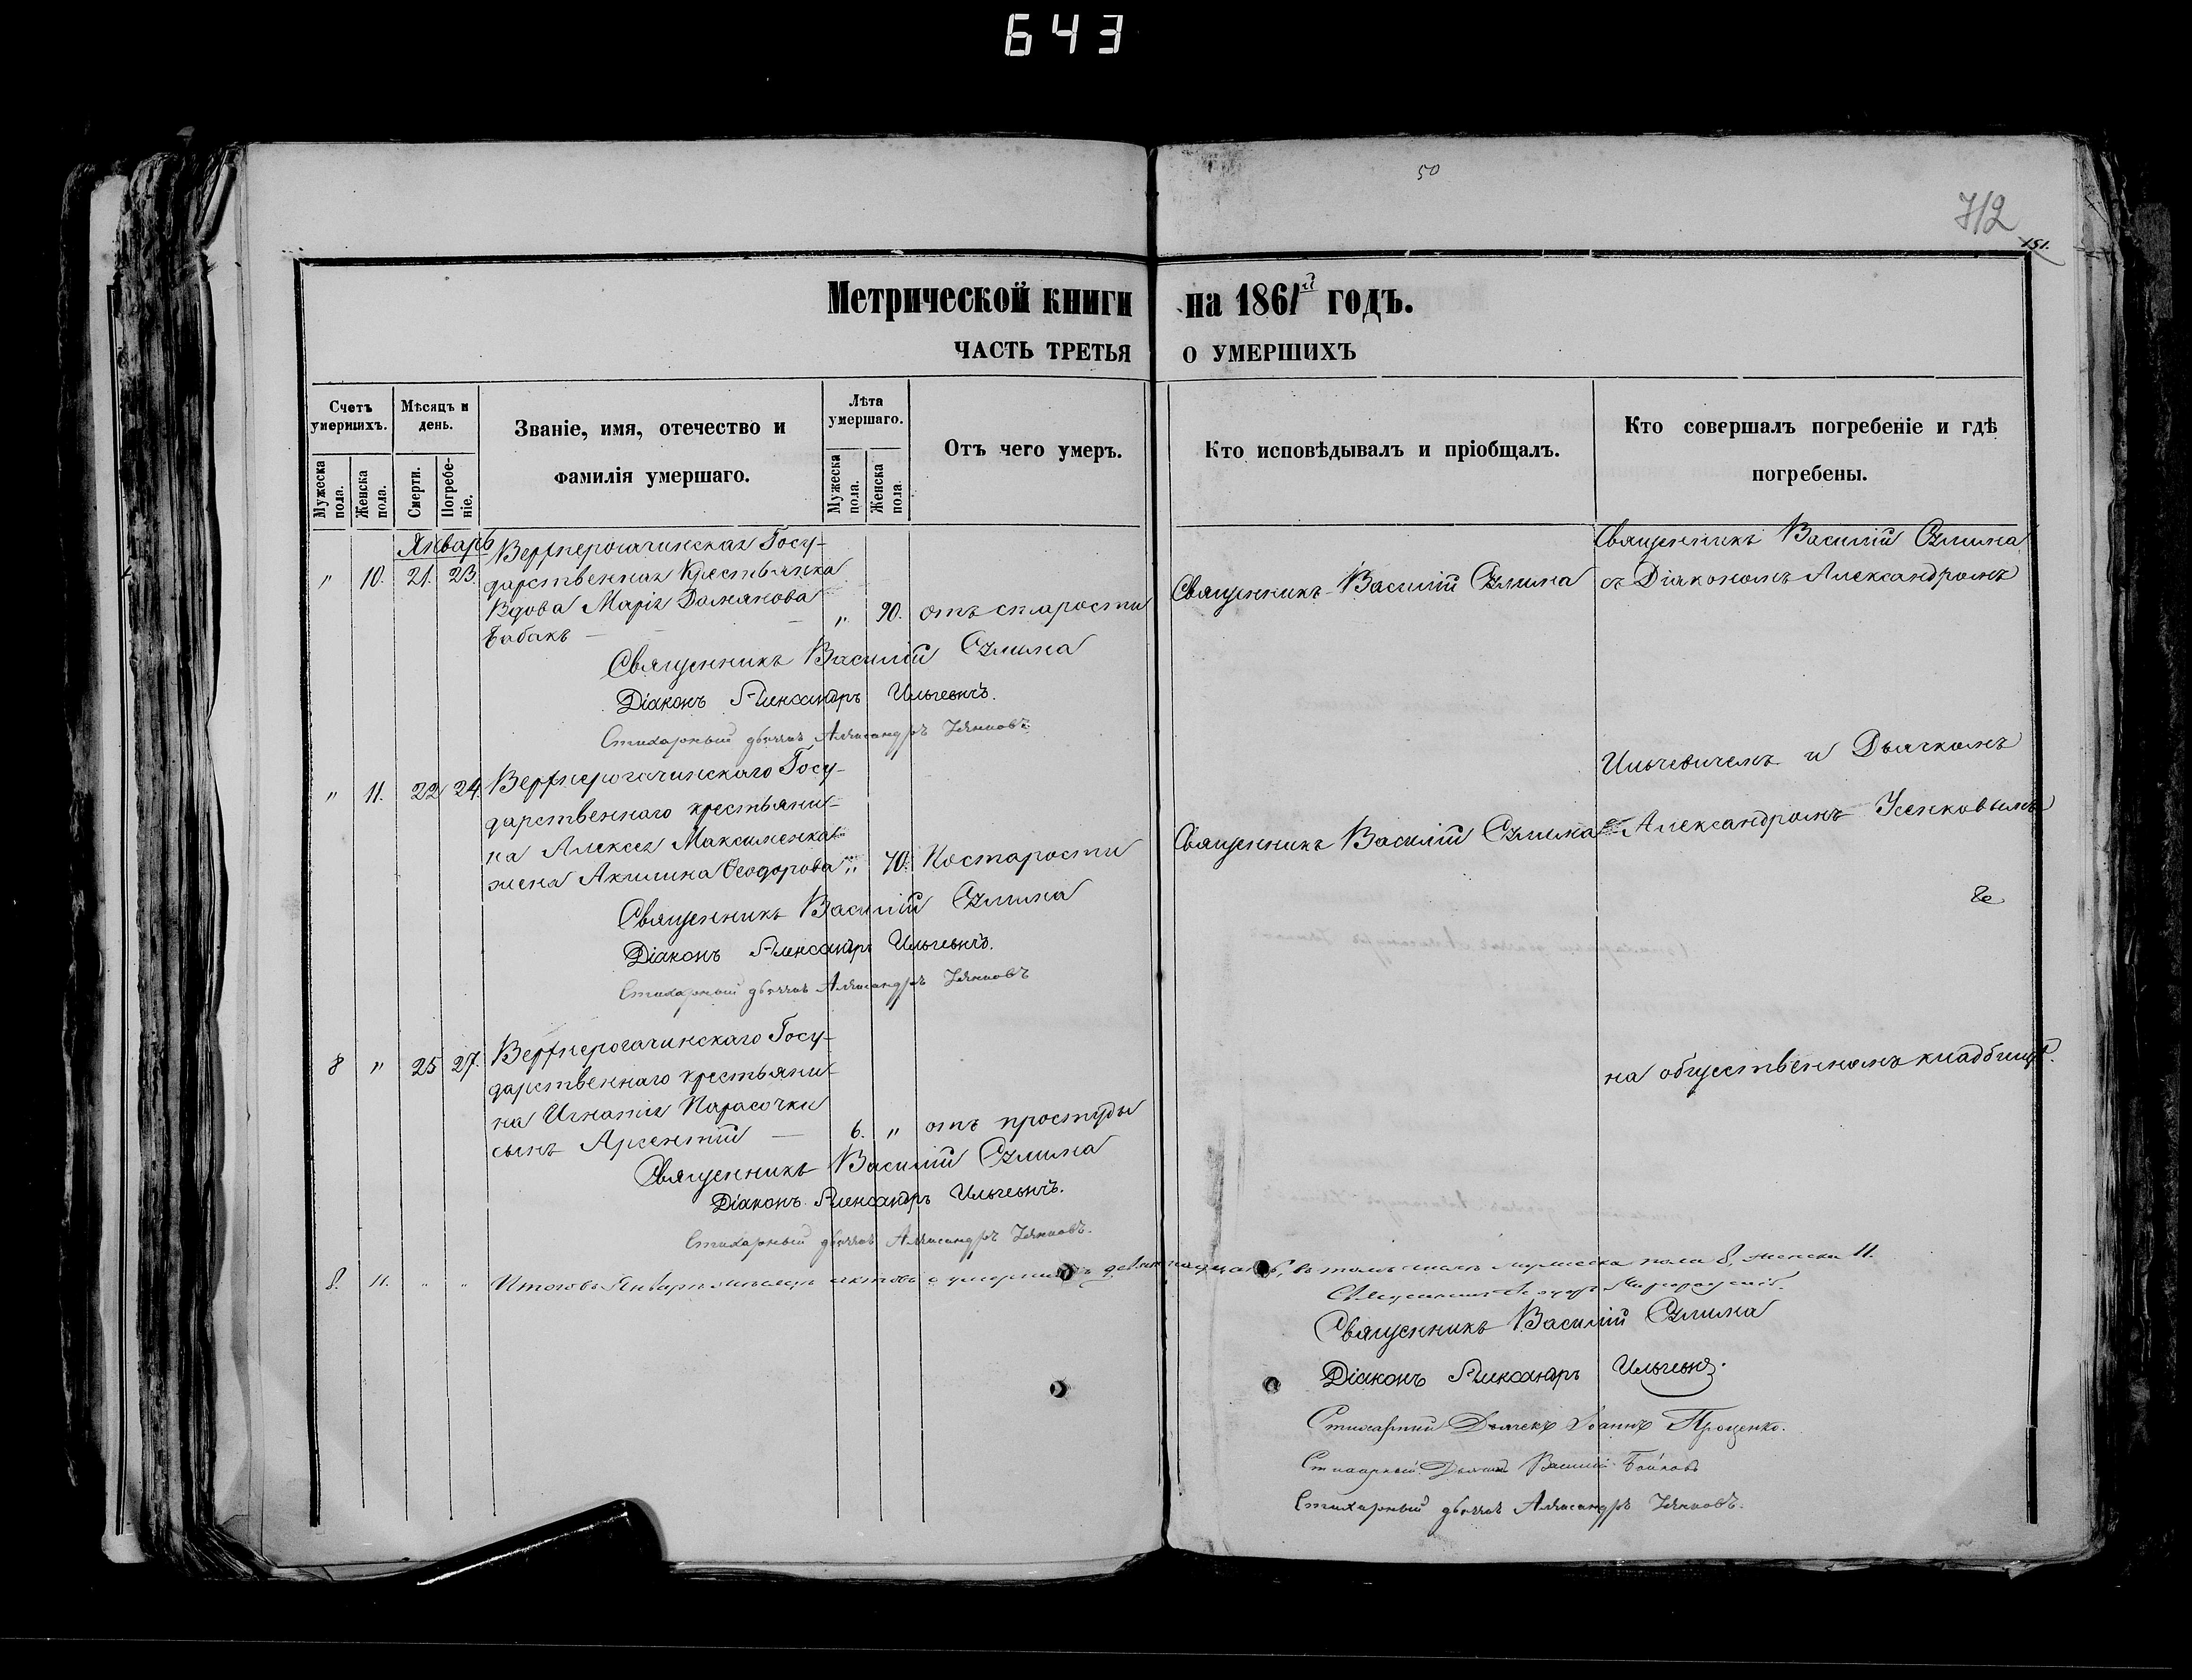 643
50
712
151.
Метрической книги на 1861й годъ.
ЧАСТЬ ТРЕТЬЯ О УМЕРШИХЪ
Счетъ умершихъ.
Мужеска пола.
Женска пола.
Мѣсяцъ и день.
Смерти.
Погребе-
ніе.
Званіе, имя, отечество и
фамилія умершаго.
Лѣта умершаго.
Мужеска пола.
Женска пола.
Отъ чего умеръ.
Кто исповѣдывалъ и пріобщалъ.
Кто совершалъ погребеніе и гдѣ
погребены.
Январь
" 10. 21. 23.
Верхнерогачинская Госу-
дарственная Крестьянка
Вдова Марія Домянова
Бабакъ — " 90. отъ старости
Священникъ Василій
Священникъ Василій
съ Діакономъ Александромъ
Священникъ Василій
Діаконъ Александръ Ильчевичъ.
Стихарный дьячекъ Александръ
" 11. 22 24.
Верхнерогачинскаго Госу-
дарственнаго крестьяни-
на Алексея Максименка
жена Акилина Ѳеодорова " 70. По старости
Священникъ Василій
Ильчевичемъ и Дьячкомъ
Александромъ Усенковымъ
Священникъ Василій
Діаконъ Александръ Ильчевичъ.
Стихарный дьячекъ Александръ
8 " 25 27.
Верхнерогачинскаго Госу-
дарственнаго крестьяни-
на Игнатія Парасочки
сынъ Арсентій — 6. " отъ простуды
на общественномъ кладбищѣ.
Священникъ Василій
Діаконъ Александръ Ильчевичъ.
Стихарный дьячекъ Александръ
8. 11. " " Итого въ Январѣ мѣсяцѣ актовъ о умершихъ девятнадцать, въ томъ числѣ мужеска пола 8, женска 11.
Священникъ
Священникъ Василій
Діаконъ Александръ
Стихарный Дьячекъ Іоаннъ Проценко.
Стихарный Дьячекъ Василій Бойковъ
Стихарный дьячекъ Александръ